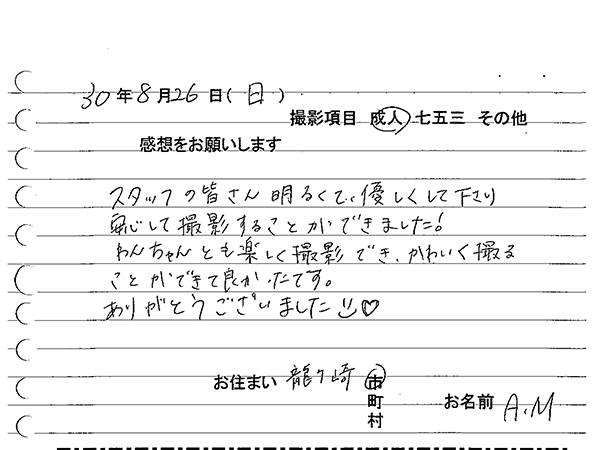 30年8月26日(日)
撮影項目 成人 七五三 その他
感想をお願いします
スタッフの皆さん明るくて、優しくして下さり
安心して撮影することができました!
わんちゃんとも楽しく撮影でき、かわいく撮る
ことができて良かったです。
ありがとうございました
お住まい 龍ケ崎 市
町
村
お名前 A.M